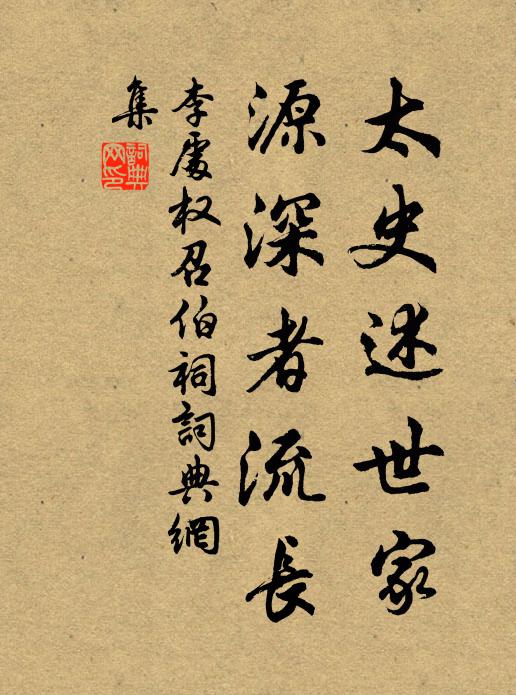 太史述世家
源深者流長
李處权召伯祠詞典網
集
詞典網印